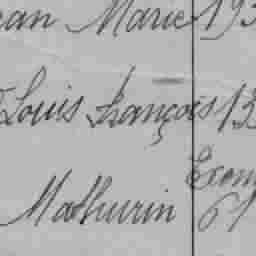 ean Marie 193
Louis François 13
Exem
Mathurin 61